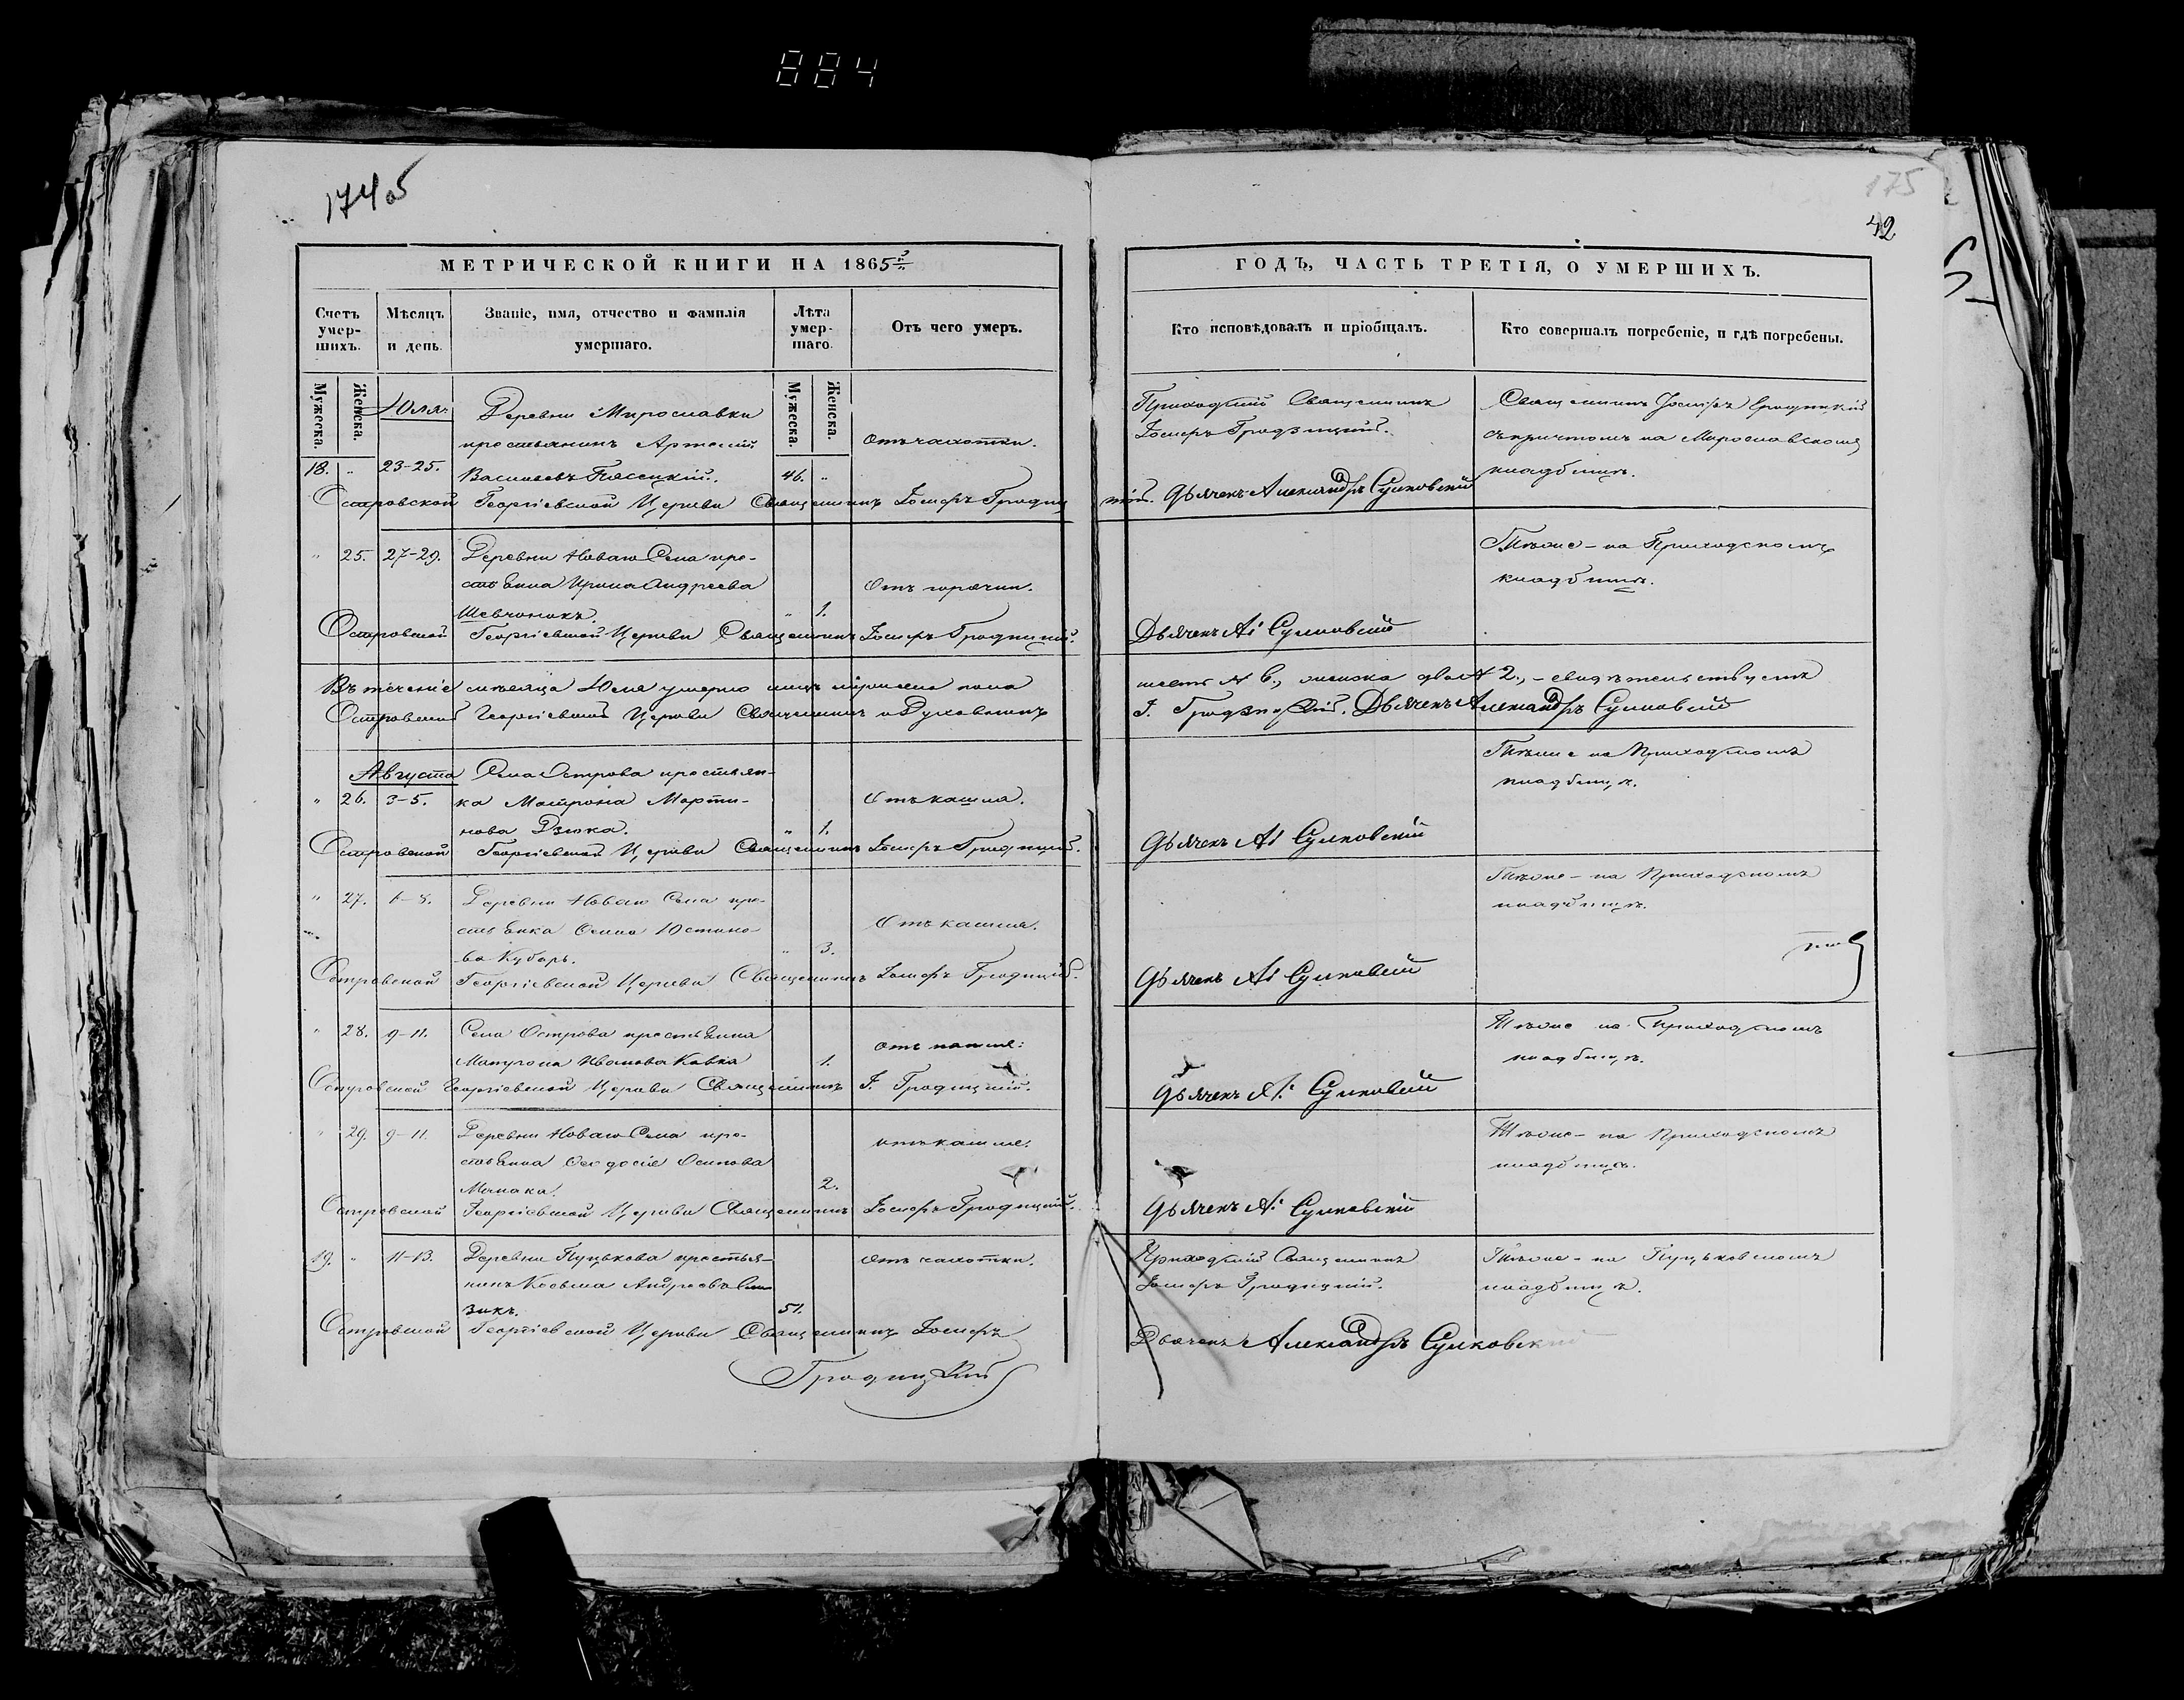 884
174 об
175
42
МЕТРИЧЕСКОЙ КНИГИ НА 1865й
ГОДЪ, ЧАСТЬ ТРЕТІЯ, О УМЕРШИХЪ.
Счетъ умер-шихъ.
Мѣсяцъ и день.
Званіе, имя, отчество и фамилія умершаго.
Лѣта умер-шаго.
Отъ чего умеръ.
Кто исповѣдовалъ и пріобщалъ.
Кто совершалъ погребеніе, и гдѣ погребены.
Мужеска.
Женска.
Мужеска.
Женска.
Юля
Деревни Мирославки
крестьянинъ Артемій
Васильевъ Пасецкій.
18. " 23-25.
46. "
отъ чахотки.
Приходскій Священникъ
Іосифъ Гродзицкій.
Священникъ Іосифъ Гродзицкій
съ причтомъ на Мирославскомъ
кладбищѣ.
Островской Георгіевской Церкви Священникъ Іосифъ Гродзиц
кій. Дьячекъ Александръ Сулковскій
" 25. 27-29.
Деревни Новаго Села кре-
стьянка Ирина Андреева
Шевчонокъ.
" 1.
Отъ горячки.
Тѣже - на Приходскомъ
кладбищѣ.
Островской Георгіевской Церкви Священникъ Іосифъ Гродзицкій.
Дьячекъ Ал Сулковскій
Въ теченіе мѣсяца Юля умерло лицъ мужеска пола
шесть № 6., женска два № 2., - свидѣтельствуетъ
Островской Георгіевской Церкви Священникъ и Духовникъ
І. Гродзицкій. Дьячекъ Александръ Сулковскій
Августа
Села Острова крестьян-
ка Матрона Марти-
нова Дзюка.
" 26. 3-5.
" 1.
Отъ кашля.
Тѣже на Приходскомъ
кладбищѣ.
Островской Георгіевской Церкви Священникъ Іосифъ Гродзицкій.
Дьячекъ Ал Сулковскій
" 27. 6-8.
Деревни Новаго Села кре-
стьянка Юстино-
ва Кубарь.
" 3.
Отъ кашля.
Тѣже - на Приходскомъ
кладбищѣ.
Островской Георгіевской Церкви Священникъ Іосифъ Гродзицкій.
Дьячекъ Ал Сулковскій
" 28. 9-11.
Села Острова крестьянка
Матрона Иванова Кавка
1.
отъ кашля.
Тѣже на Приходскомъ
кладбищѣ.
Островской Георгіевской Церкви Священникъ І. Гродзицкій.
Дьячекъ Ал. Сулковскій
" 29. 9-11.
Деревни Новаго Села кре-
стьянка Ѳеодосія Осипова
2.
отъ кашля.
Тѣже - на Приходскомъ
кладбищѣ.
Островской Георгіевской Церкви Священникъ Іосифъ Гродзицкій.
Дьячекъ Ал Сулковскій
19. " 11-13.
Деревни Пуцькова крестья-
нинъ Косьма Андреевъ
зикъ.
51.
отъ чахотки.
Приходскій Священникъ
Іосифъ Гродзицкій.
Тѣже - на Пуцьковскомъ
кладбищѣ.
Островской Георгіевской Церкви Священникъ Іосифъ
Гродзицкій
Дьячекъ Александръ Сулковскій